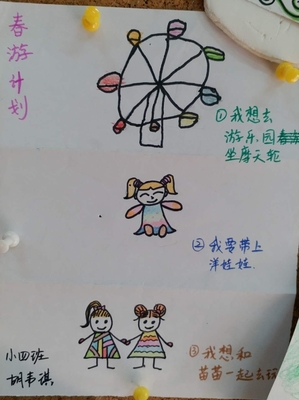 春游计划
①我想去
游乐园
坐摩天轮
②我要带上
洋娃娃
③我想和
苗苗一起去玩
小四班
胡韦祺